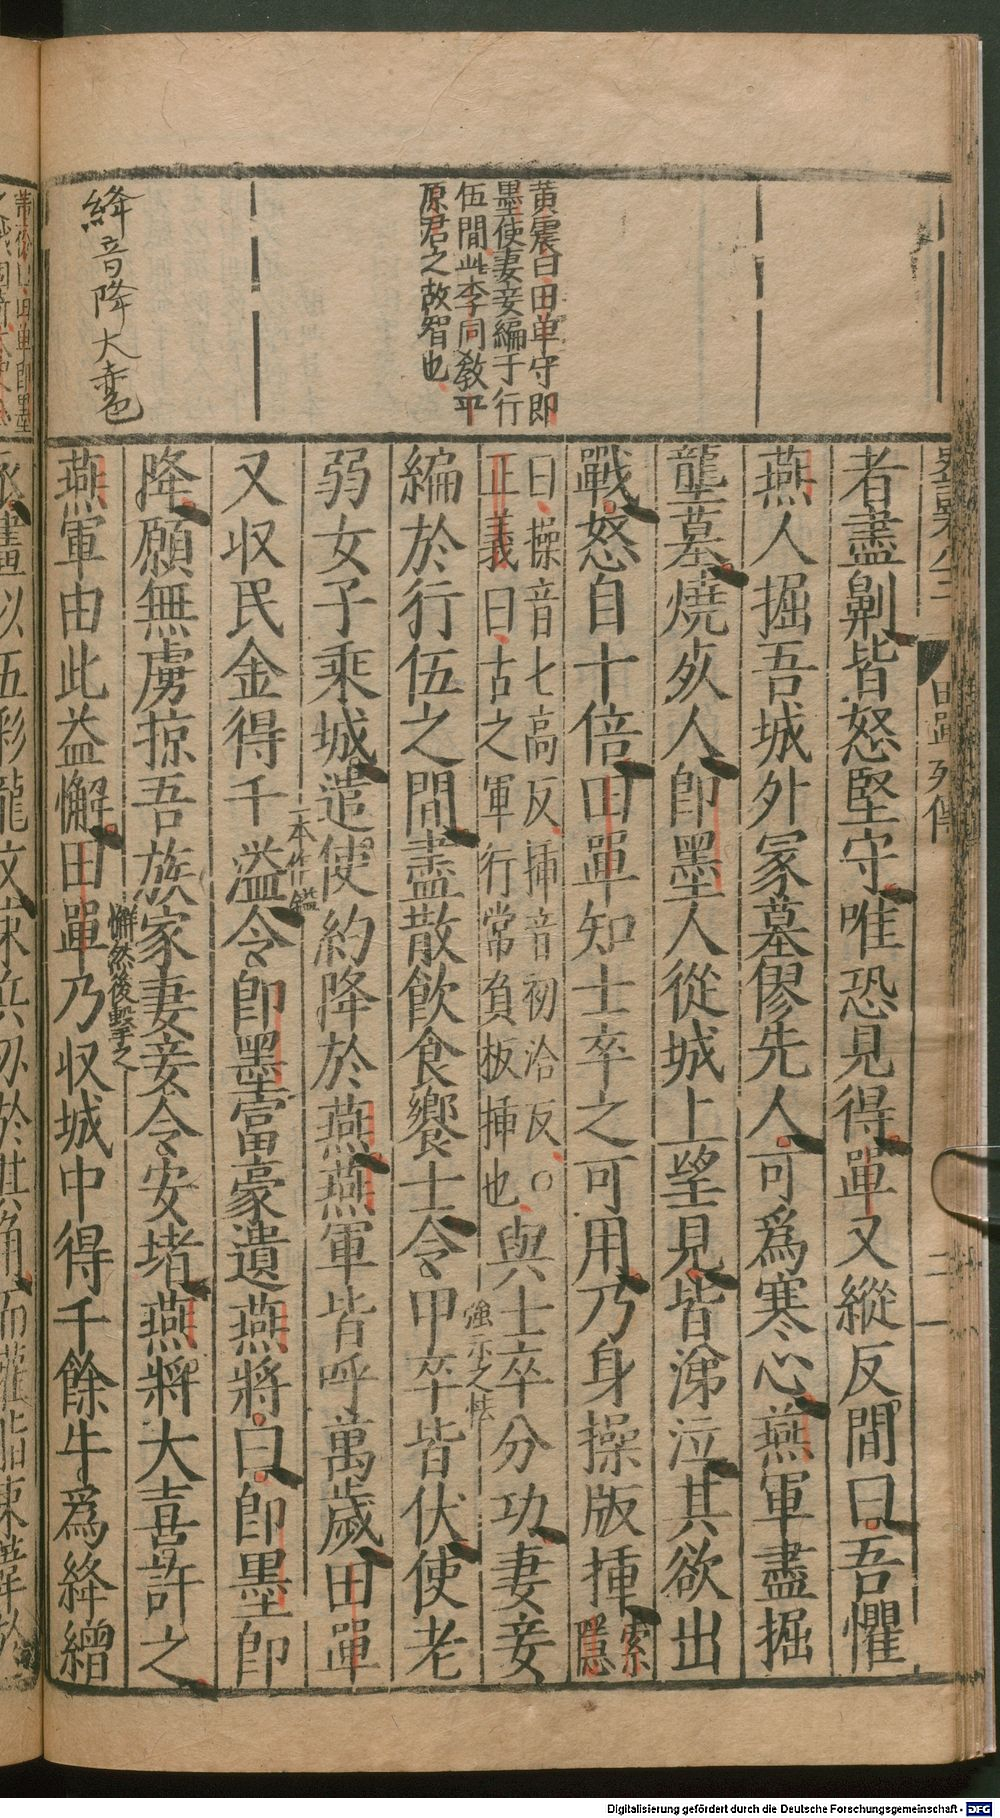 黃震曰田單守即
墨使妻妾編于行
伍間此李同教平
原君之故智也
絳音降大赤色
者盡劓皆怒堅守唯恐見得單又縱反間曰吾懼
燕人掘吾城外冢墓僇先人可爲寒心燕軍盡掘
壟墓燒死人即墨人從城上望見皆涕泣其欲出
戰怒自十倍田單知士卒之可用乃身操版揷索
隱
曰操音七高反揷音初洽反○
正義曰古之軍行常負板揷也
與士卒分功妻妾
強示之怯
編於行伍之間盡散飲食饗士令甲卒皆伏使老
弱女子乘城遣使約降於燕燕軍皆呼萬歲田單
一本作鎰
又収民金得千溢令即墨富豪遺燕將曰即墨即
降願無虜掠吾族家妻妾令安堵燕將大喜許之
懈然後擊之
燕軍由此益懈田單乃収城中得千餘牛爲絳繒
Digitalisierung gefördert durch die Deutsche Forschungsgemeinschaft - DFG